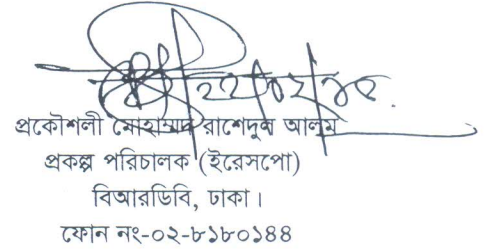 ২২/০২/১৫.
প্রকৌশলী মোহাম্মদ রাশেদুল আলম
প্রকল্প পরিচালক (ইরেসপো)
বিআরডিবি, ঢাকা।
ফোন নং-০২-৮১৮০১৪৪